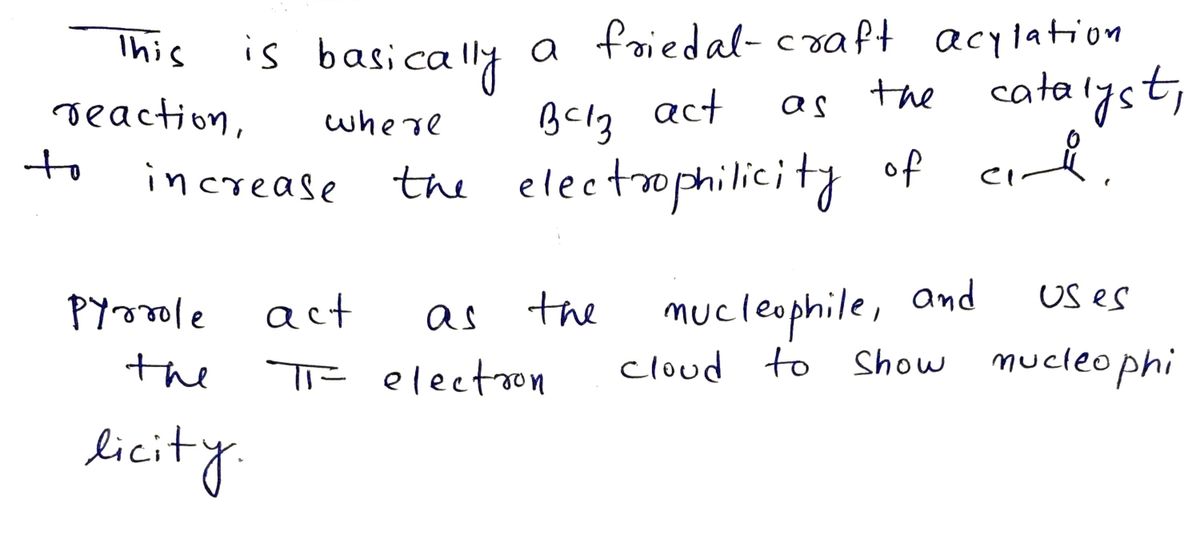 This is basically a friedal-craft acylation
reaction, where BCl3 act as the catalyst,
to increase the electrophilicity of Cl O .
PYrrole act as the nucleophile, and uses
the π= electron cloud to show nucleophi
licity.